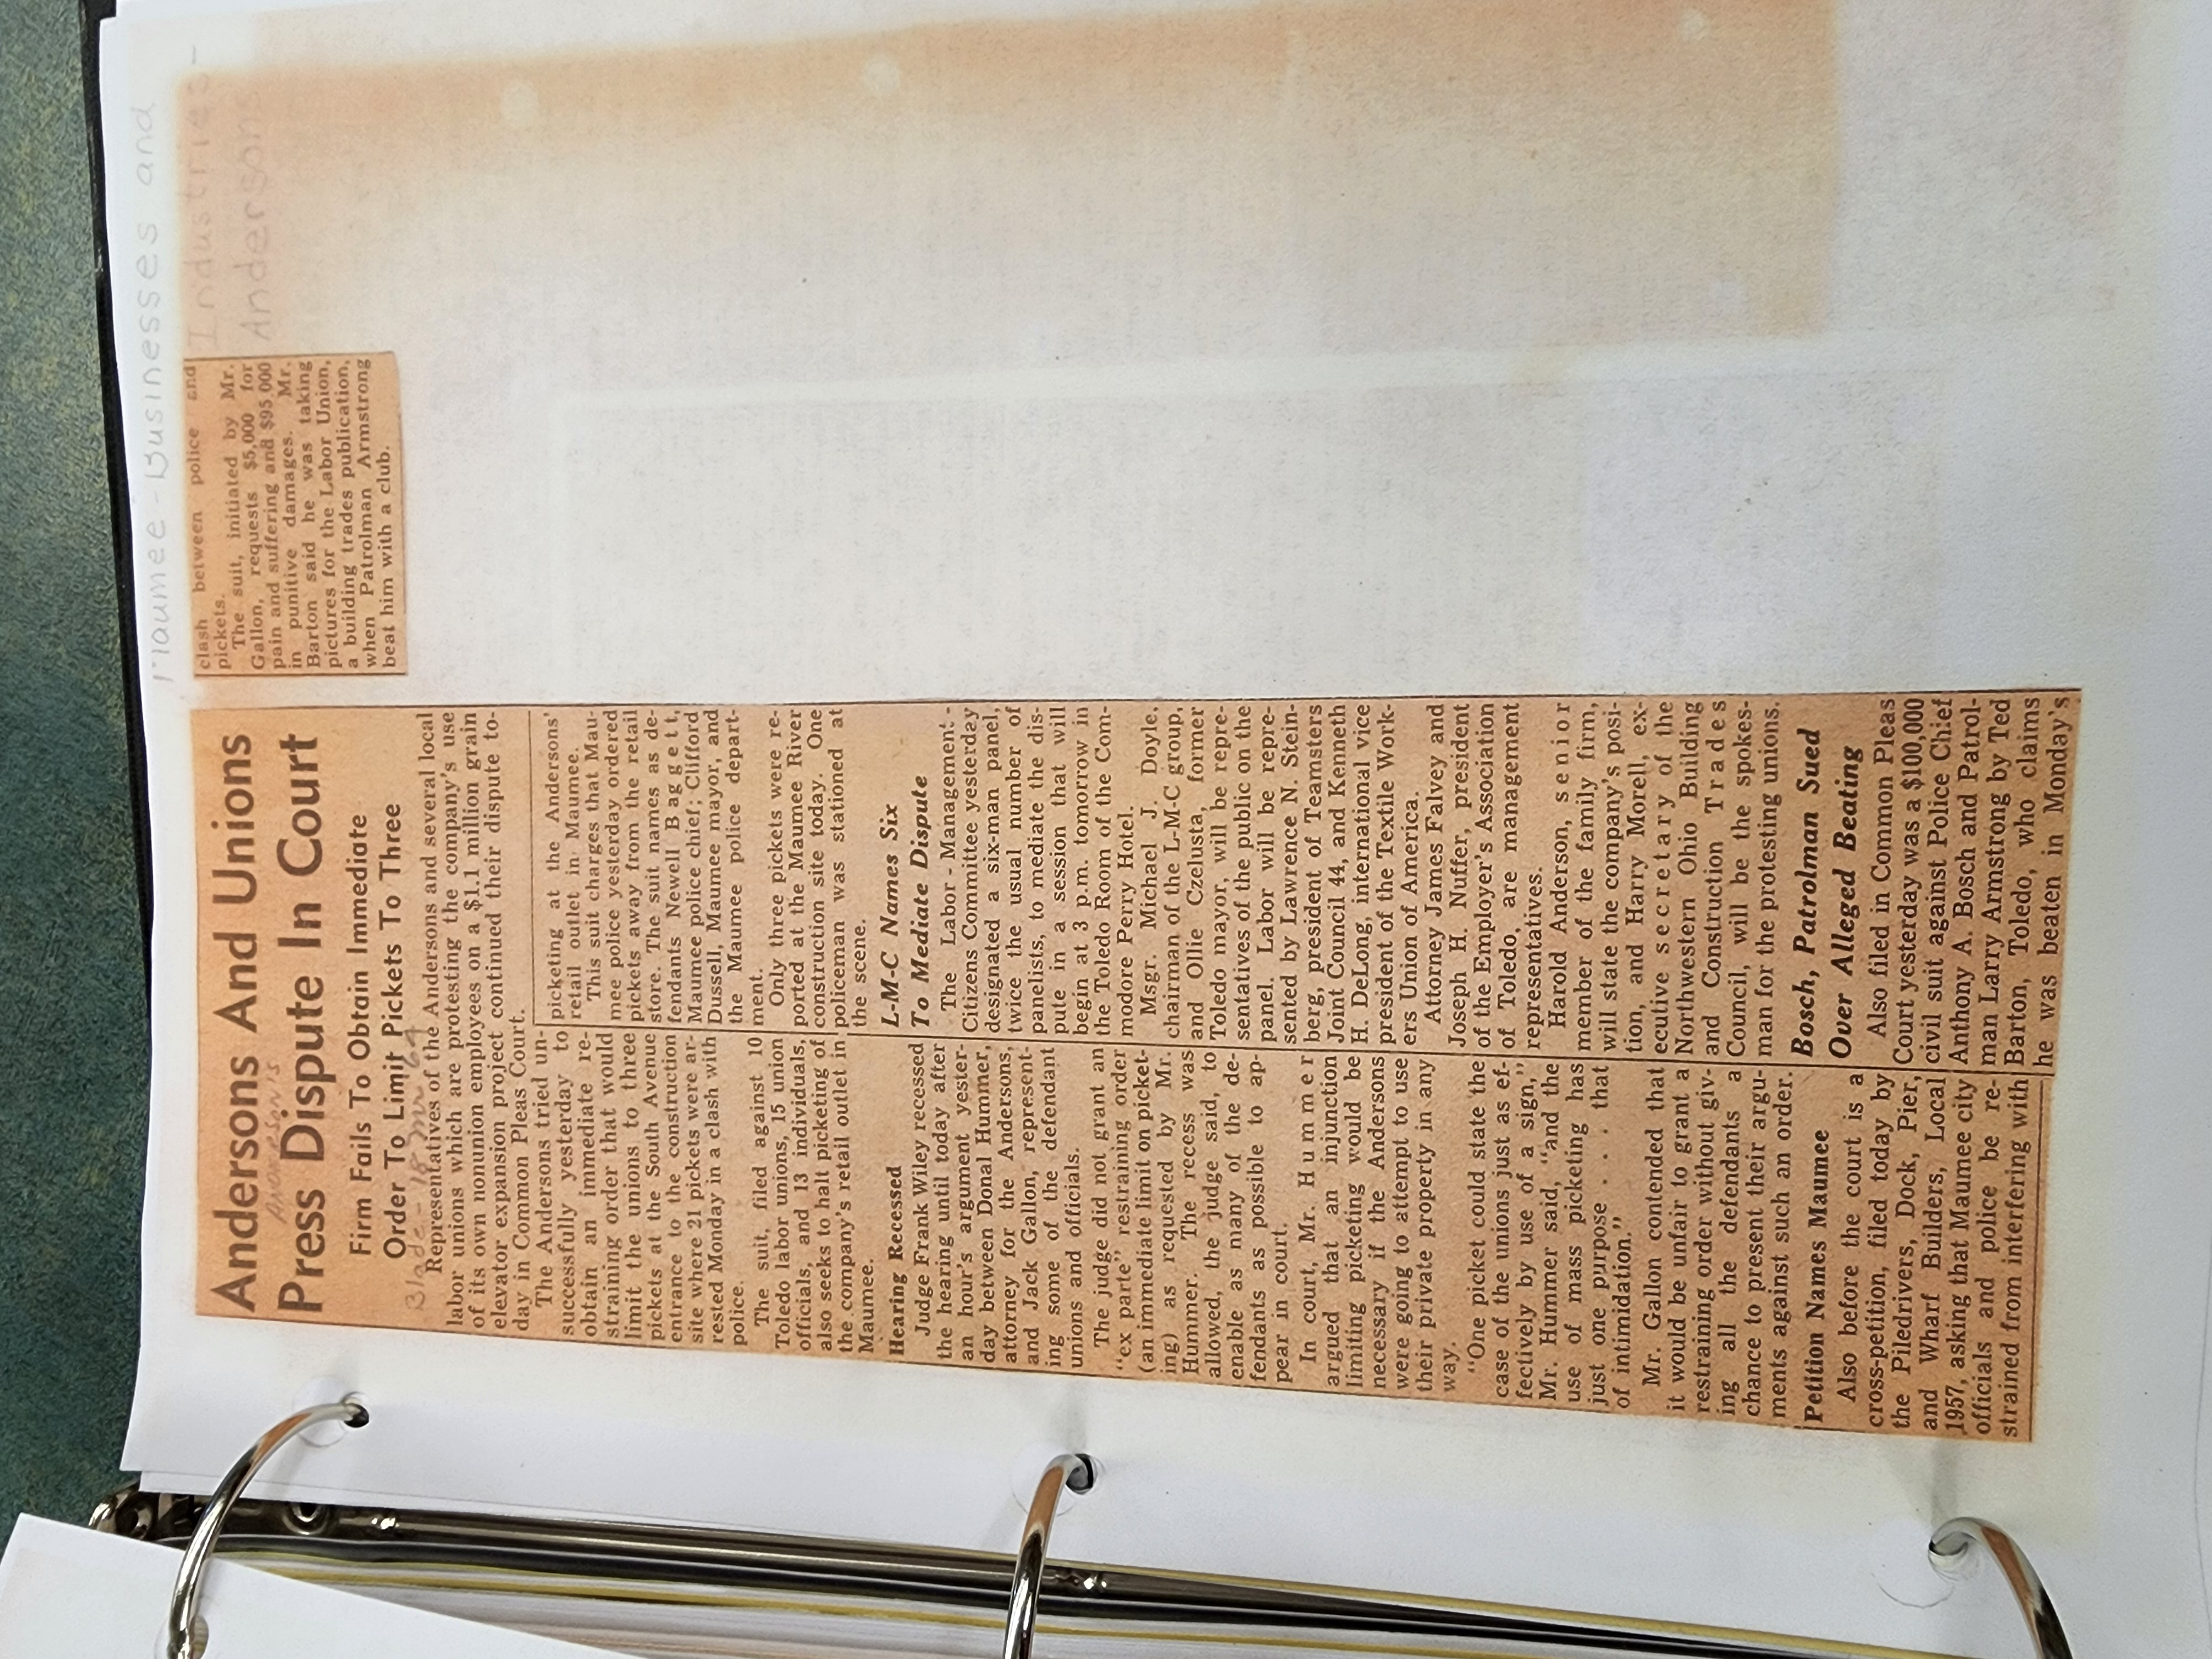 Maumee - Businesses and
Industries -
Andersons
Andersons And Unions
Andersons
Press Dispute In Court
Firm Fails To Obtain Immediate
Order To Limit Pickets To Three
Blade - 18
Representatives of the Andersons and several local
labor unions which are protesting the company's use
of its own nonunion employees on a $1.1 million grain
elevator expansion project continued their dispute to-
day in Common Pleas Court.
The Andersons tried un-
successfully yesterday to
obtain an immediate re-
straining order that would
limit the unions to three
pickets at the South Avenue
entrance to the construction
site where 21 pickets were ar-
rested Monday in a clash with
police.
The suit, filed against 10
Toledo labor unions, 15 union
officials, and 13 individuals,
also seeks to halt picketing of
the company's retail outlet in
Maumee.
Hearing Recessed
Judge Frank Wiley recessed
the hearing until today after
an hour's argument yester-
day between Donal Hummer,
attorney for the Andersons,
and Jack Gallon, represent-
ing some of the defendant
unions and officials.
The judge did not grant an
"ex parte" restraining order
(an immediate limit on picket-
ing) as requested by Mr.
Hummer. The recess was
allowed, the judge said, to
enable as many of the de-
fendants as possible to ap-
pear in court.
In court, Mr. Hummer
argued that an injunction
limiting picketing would be
necessary if the Andersons
were going to attempt to use
their private property in any
way.
"One picket could state the
case of the unions just as ef-
fectively by use of a sign,"
Mr. Hummer said, "and the
use of mass picketing has
just one purpose . . . that
of intimidation."
Mr. Gallon contended that
it would be unfair to grant a
restraining order without giv-
ing all the defendants a
chance to present their argu-
ments against such an order.
Petition Names Maumee
Also before the court is a
cross-petition, filed today by
the Piledrivers, Dock, Pier,
and Wharf Builders, Local
1957, asking that Maumee city
officials and police be re-
strained from interfering with
picketing at the Andersons'
retail outlet in Maumee.
This suit charges that Mau-
mee police yesterday ordered
pickets away from the retail
store. The suit names as de-
fendants Newell Baggett,
Maumee police chief; Clifford
Dussell, Maumee mayor, and
the Maumee police depart-
ment.
Only three pickets were re-
ported at the Maumee River
construction site today. One
policeman was stationed at
the scene.
L-M-C Names Six
To Mediate Dispute
The Labor - Management -
Citizens Committee yesterday
designated a six-man panel,
twice the usual number of
panelists, to mediate the dis-
pute in a session that will
begin at 3 p.m. tomorrow in
the Toledo Room of the Com-
modore Perry Hotel.
Msgr. Michael J. Doyle,
chairman of the L-M-C group,
and Ollie Czelusta, former
Toledo mayor, will be repre-
sentatives of the public on the
panel. Labor will be repre-
sented by Lawrence N. Stein-
berg, president of Teamsters
Joint Council 44, and Kenneth
H. DeLong, international vice
president of the Textile Work-
ers Union of America.
Attorney James Falvey and
Joseph H. Nuffer, president
of the Employer's Association
of Toledo, are management
representatives.
Harold Anderson, senior
member of the family firm,
will state the company's posi-
tion, and Harry Morell, ex-
ecutive secretary of the
Northwestern Ohio Building
and Construction Trades
Council, will be the spokes-
man for the protesting unions.
Bosch, Patrolman Sued
Over Alleged Beating
Also filed in Common Pleas
Court yesterday was a $100,000
civil suit against Police Chief
Anthony A. Bosch and Patrol-
man Larry Armstrong by Ted
Barton, Toledo, who claims
he was beaten in Monday's
clash between police and
pickets.
The suit, initiated by Mr.
Gallon, requests $5,000 for
pain and suffering and $95,000
in punitive damages. Mr.
Barton said he was taking
pictures for the Labor Union,
a building trades publication,
when Patrolman Armstrong
beat him with a club.